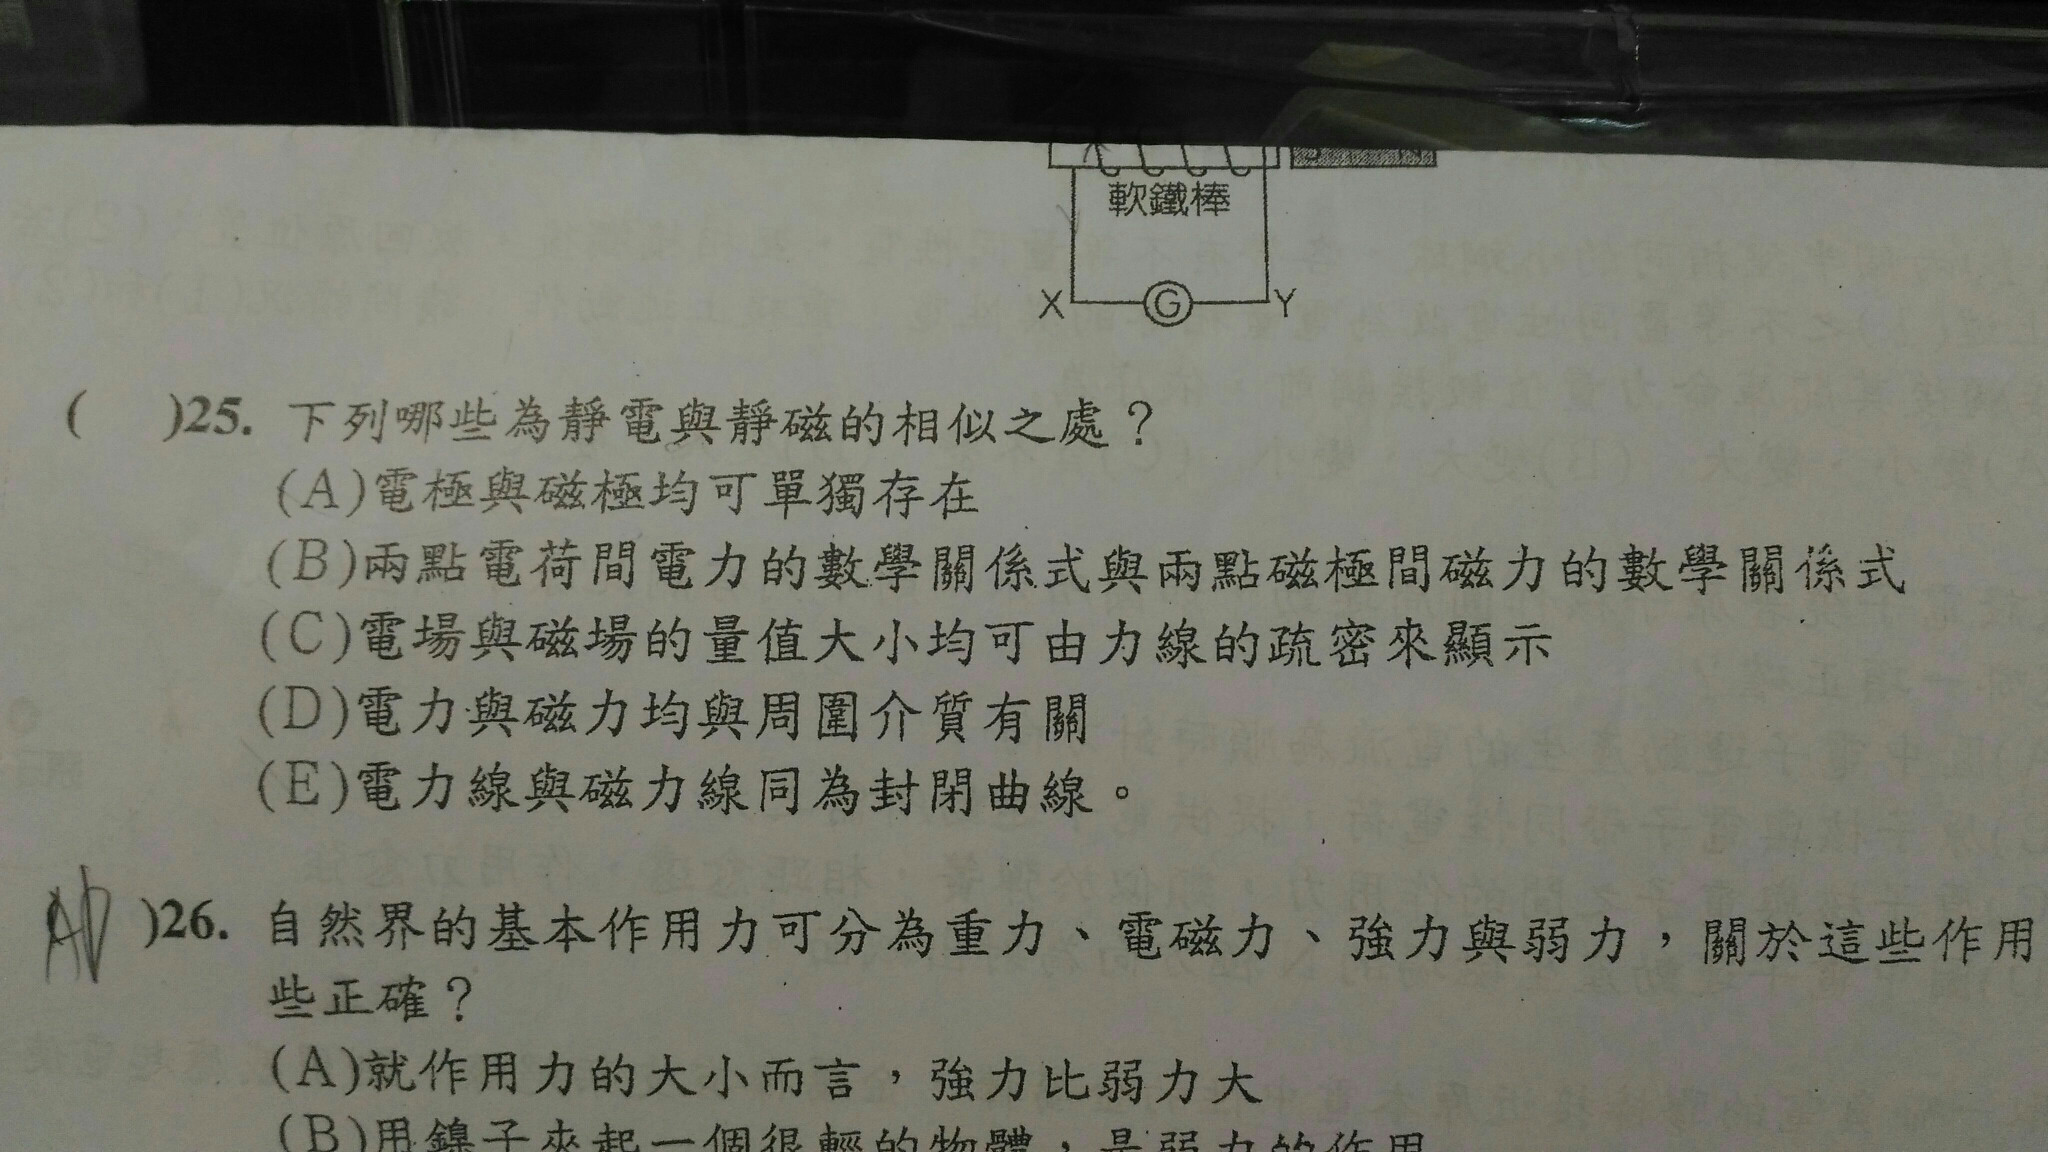 軟鐵棒
X G Y
( )25. 下列哪些為靜電與靜磁的相似之處？
(A)電極與磁極均可單獨存在
(B)兩點電荷間電力的數學關係式與兩點磁極間磁力的數學關係式
(C)電場與磁場的量值大小均可由力線的疏密來顯示
(D)電力與磁力均與周圍介質有關
(E)電力線與磁力線同為封閉曲線。
AD )26. 自然界的基本作用力可分為重力、電磁力、強力與弱力，關於這些作用
些正確？
(A)就作用力的大小而言，強力比弱力大
(B)用鑷子夾起一個很輕的物體，是弱力的作用